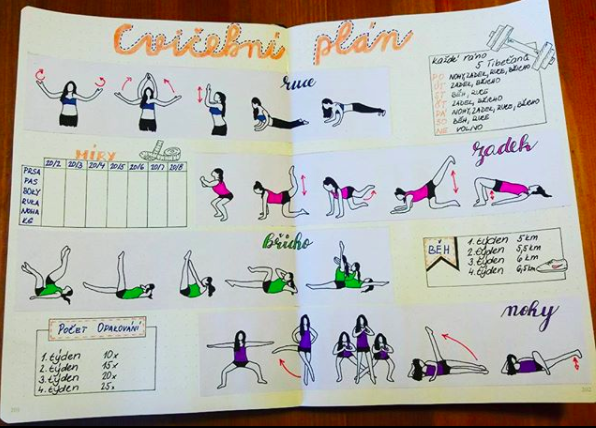 Cvičební plán
ruce
každé ráno
5 Tibeťanů
PO NOHY, ZADEK, RUCE, BŘICHO
ÚT ZADEK, BŘICHO
ST BĚH, RUCE
ČT ZADEK, BŘICHO
PÁ NOHY, ZADEK, RUCE, BŘICHO
SO BĚH, RUCE
NE VOLNO
MÍRY
20/2 20/3 20/4 20/5 20/6 20/7 20/8
PRSA
PAS
BOKY
RUKA
NOHA
KG
zadek
břicho
BĚH
1. týden 5 km
2. týden 5,5 km
3. týden 6 km
4. týden 6,5 km
POČET OPAKOVÁNÍ
1. týden 10x
2. týden 15x
3. týden 20x
4. týden 25x
nohy